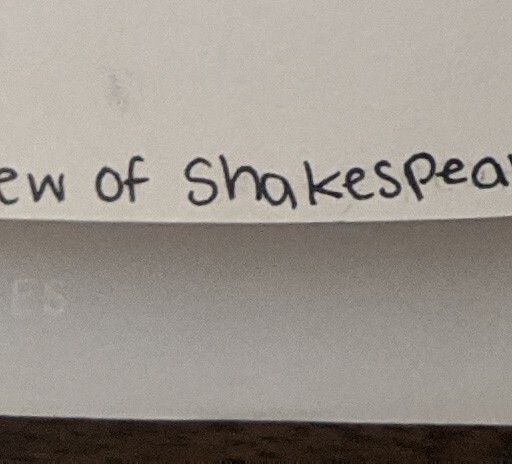 ew of Shakespea
ES